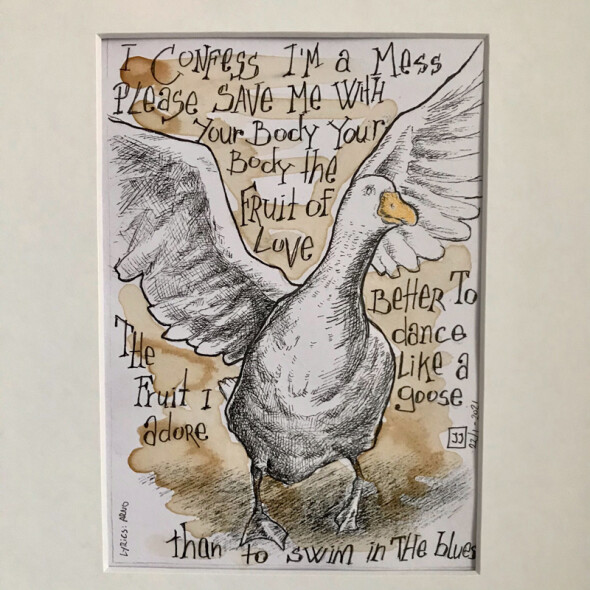 I CONFESS I'M a MESS
PLEASE SAVE ME WitH
Your Body Your
Body the
FRUit OF
LOVE
THE
Fruit I
adore
BEttER To
dance
Like a
goose
JJ
than to swim in THE blues
LYRICS: ARNO